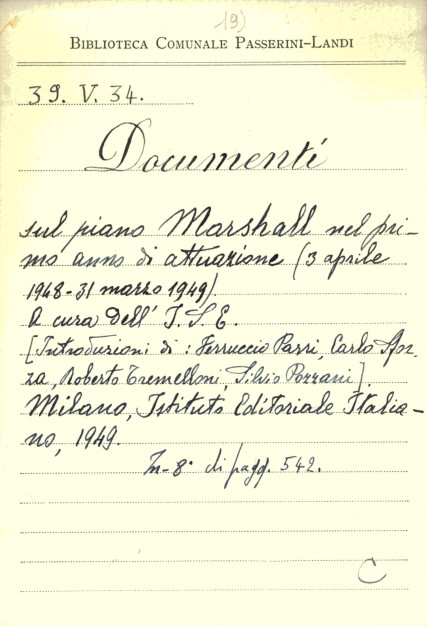 19)
BIBLIOTECA COMUNALE PASSERINI-LANDI
39. V. 34.
Documenti
sul piano Marshall nel pri-
mo anno di attuazione (3 aprile
1948-31 marzo 1949)
A cura dell' I. S. E.
[Introduzioni di : Ferruccio Parri, Carlo Sfor-
za, Roberto Tremelloni, Silvio Pozzani].
Milano, Istituto Editoriale Italia-
no, 1949.
In-8° di pagg. 542.
C